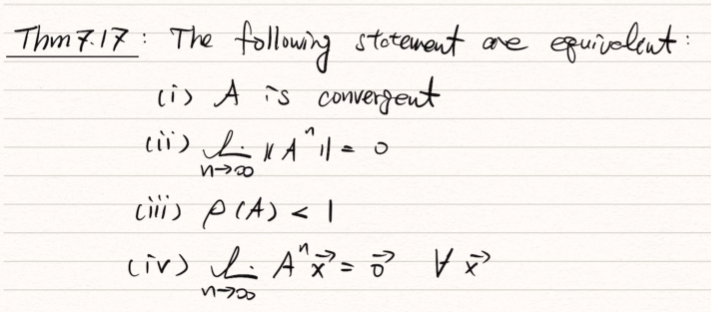 Thm 7.17 : The following statement are equivalent :
(i) A is convergent
(ii) lim n→∞ ‖A^n‖ = 0
(iii) ρ(A) < 1
(iv) lim n→∞ A^n x⃗ = 0⃗ ∀ x⃗